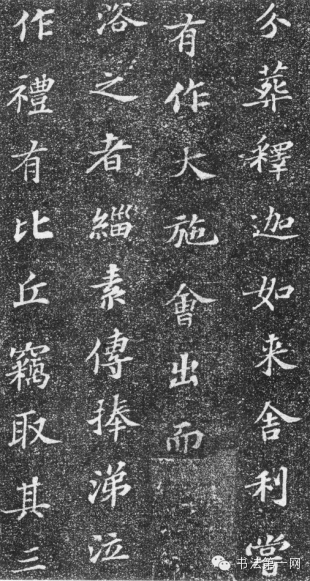 分葬釋迦如来舍利嘗
有作大施會出而
浴之者緇素傳捧涕泣
作禮有比丘竊取其三
书法第一网